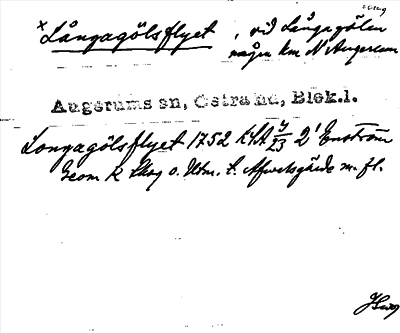 x Långagölsflyet, vid Långagölen
några km N Augerum
Augerums sn, Östra hd, Blek.l.
Longagölsflyet 1752 KSA 4/23 2' Enström
Geom k Skog o. Utm. t. Afvelsgärde m. fl.